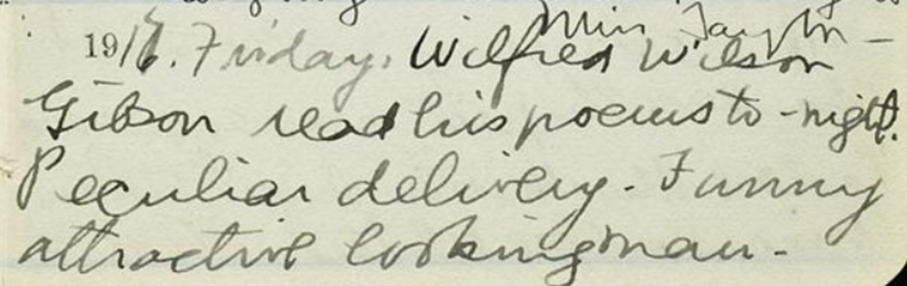 Miss Taylor -
1917. Friday. Wilfred Wilson
Gibson read his poems to-night.
Peculiar delivery. Funny
attractive looking man.